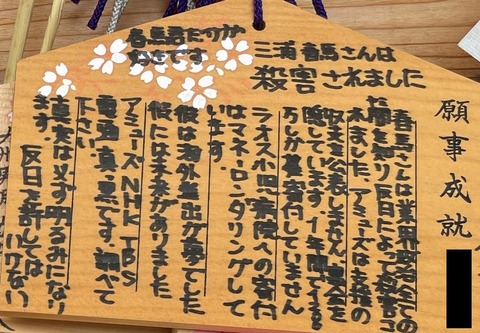 三浦春馬さんは
殺害されました
願事成就
春馬さんは業界
闇を知り反日によって殺害
れました。アミューズは支援の
収支を公表しません裏金を
隠しています1年間で
万しか 寄付していません
ラオス小児病院への寄付
はマネーロンダリングして
います。
彼は海外進出が夢でした
彼には未来がありました
アミューズNHKTBS
電通真っ黒です調べて
下さい
真実は必ず明るみになり
ます。反日を許しては
いけない